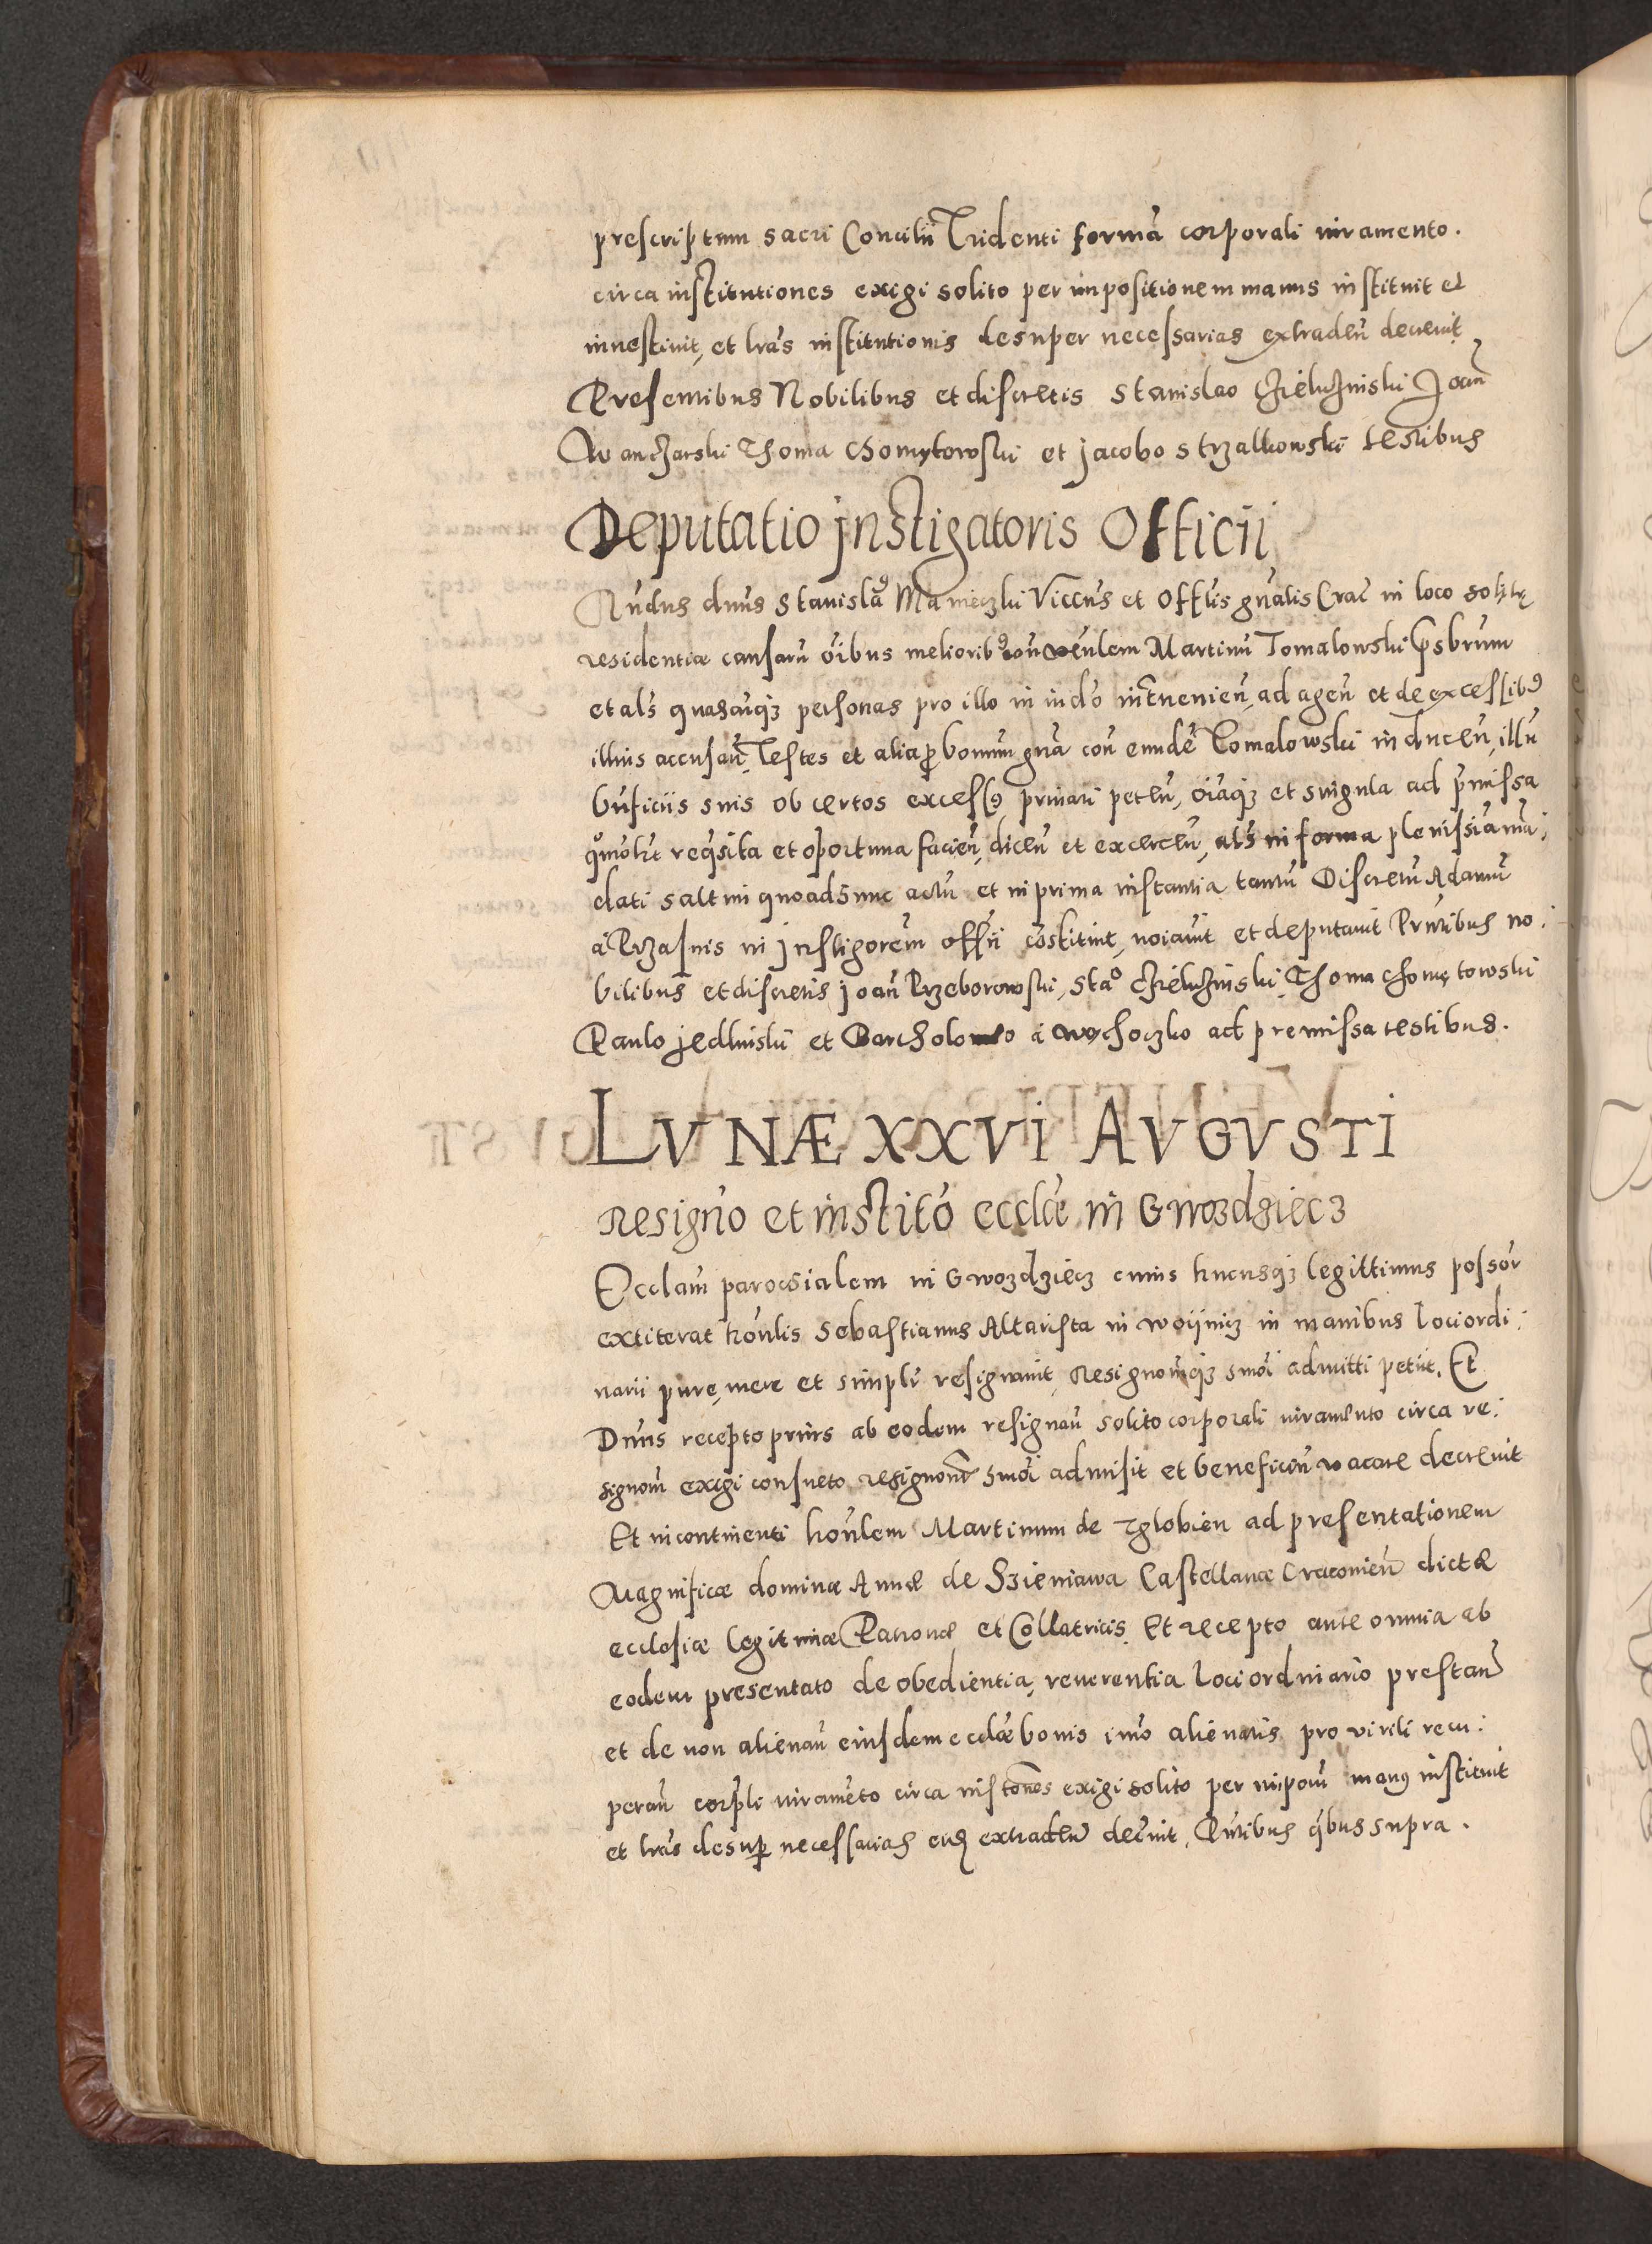 prescriptum sacri Concilii Tridenti formā corporali iuramento.
circa institutiones exigi solito per impositionem manus instituit et
inuestiuit, et lrās institutionis desuper necessarias extradeñ decreuit
Presentibus Nobilibus et discretis Stanislao Joañ
Wanczarski Thoma Chomętowski et Jacobo Strzalkowski testibus
Deputatio Jnstigatoris Officii
Rñdus dnūs Stanislā9 Manieczki Viccñs et Offlis gñalis Crac̄ in loco solitę
residentiæ causarū oībus meliorib9 Martinū Tomalowski Psbrum
et als̄ quascūqȝ personas pro illo in iud̄o intuenieñ, ad ageñ et de excessib9
illius accusañ, Testes et alia ꝓbonum gnā con eundē Tomalowski in duceñ, illū
bñficiis suis ob certos excess9 priuari peteñ, oīaqȝ et singula ad pr̄missa
reqsita et oportuna facieñ, diceñ et exerceñ, als̄ in forma plenissiā mā,
dati saltim quoad sunc actū et in prima instantia tantū Discretū Adamū
à Rzasnis in Jnstigorem offii cōstituit, noiauit et deputauit Prñtibus no:
bilibus et discretis Joañ Przeborowski, Stāo Thoma Chomętowski
Paulo Jedlinski et Bartholomeo à Wochoczko ad premissa testibus.
LVNÆ XXVI AVGVSTI
Resigño et institō ecclæ in Gwozdziecz
Ecclam parochialem in Gwozdziecz cuius hucusqȝ legittimus possōr
extiterat hoñlis Sebastianus Altarista in Woijnicz in manibus Loci ordi:
narii purę, mere et simplr̄ resignauit, Resignoñqȝ smōi admitti petiit. Et
Dnūs recepto priùs ab eodem resignañ solito corporali iuramento circa re:
signoñ exigi consueto resignonē smōi admisit et beneficiū vacare decreuit
Et incontinenti hoñlem Martinum de Zglobien ad presentationem
Magnificæ dominæ Annæ de Szieniawa Castellanæ Cracouieñ dictæ
ecclesiæ legitimæ Patronæ et Collatricis. Et recepto ante omnia ab
eodem presentato de obedientia, reuerentia Loci ordinario prestañ
et de non alienañ eiusdem ecclæ bonis imō alienatis pro virili recu:
perañ corpli iuramēto circa instōnes exigi solito per impoñ man9 instituit
et lrās desuꝑ necessarias extradeñ decuit, Prñtibus qbus supra.